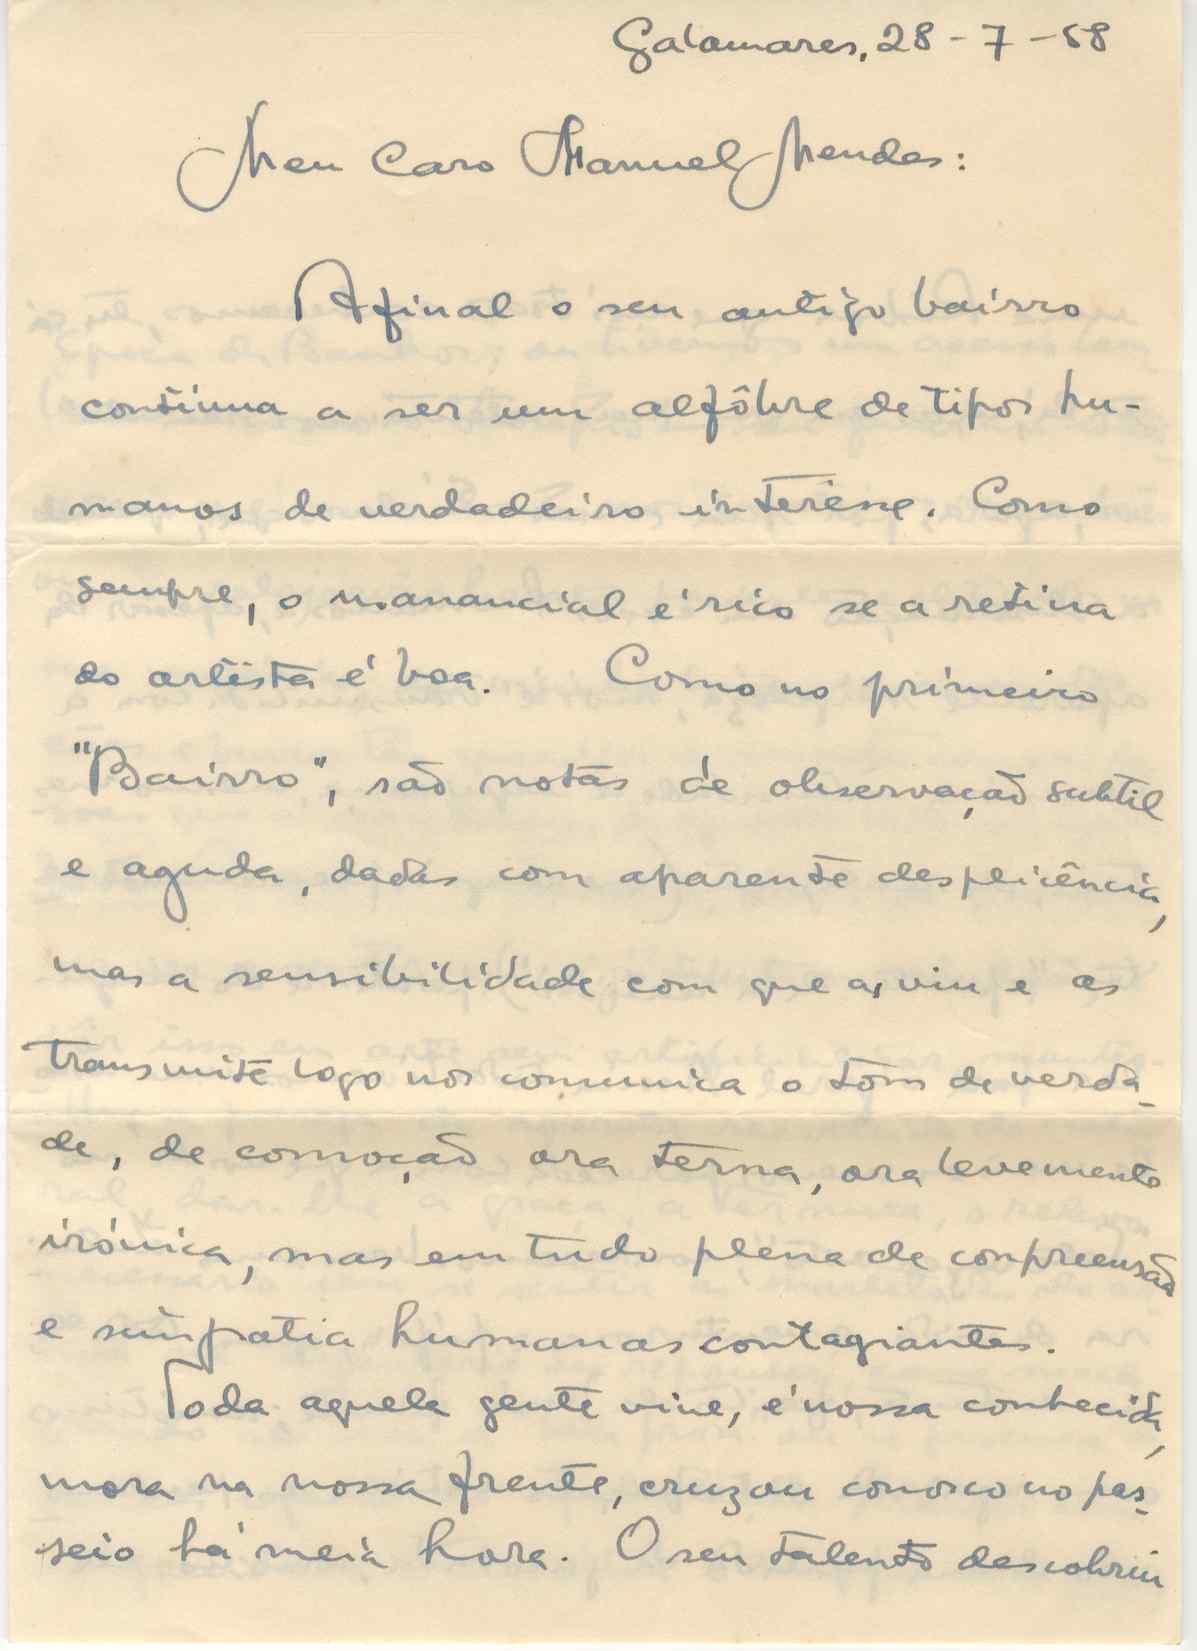 Galamares, 28-7-58
Meu Caro Manuel Mendes:
Afinal o seu antigo bairro
continua a ser um alfôbre de tipos hu-
manos de verdadeiro interêsse. Como
sempre, o manancial é rico se a retina
do artista é boa. Como no primeiro
"Bairro", são notas de observação subtil
e aguda, dadas com aparente desplicência,
mas a sensibilidade com que as viu e as
transmite logo nos comunica o tom de verda-
de, de comoção ora terna, ora levemente
irónica, mas em tudo plena de conpreensão
e simpatia humanas contagiantes.
Toda aquela gente vive, é nossa conhecida,
mora na nossa frente, cruzou conosco no pas-
seio há meia hora. O seu talento descobriu